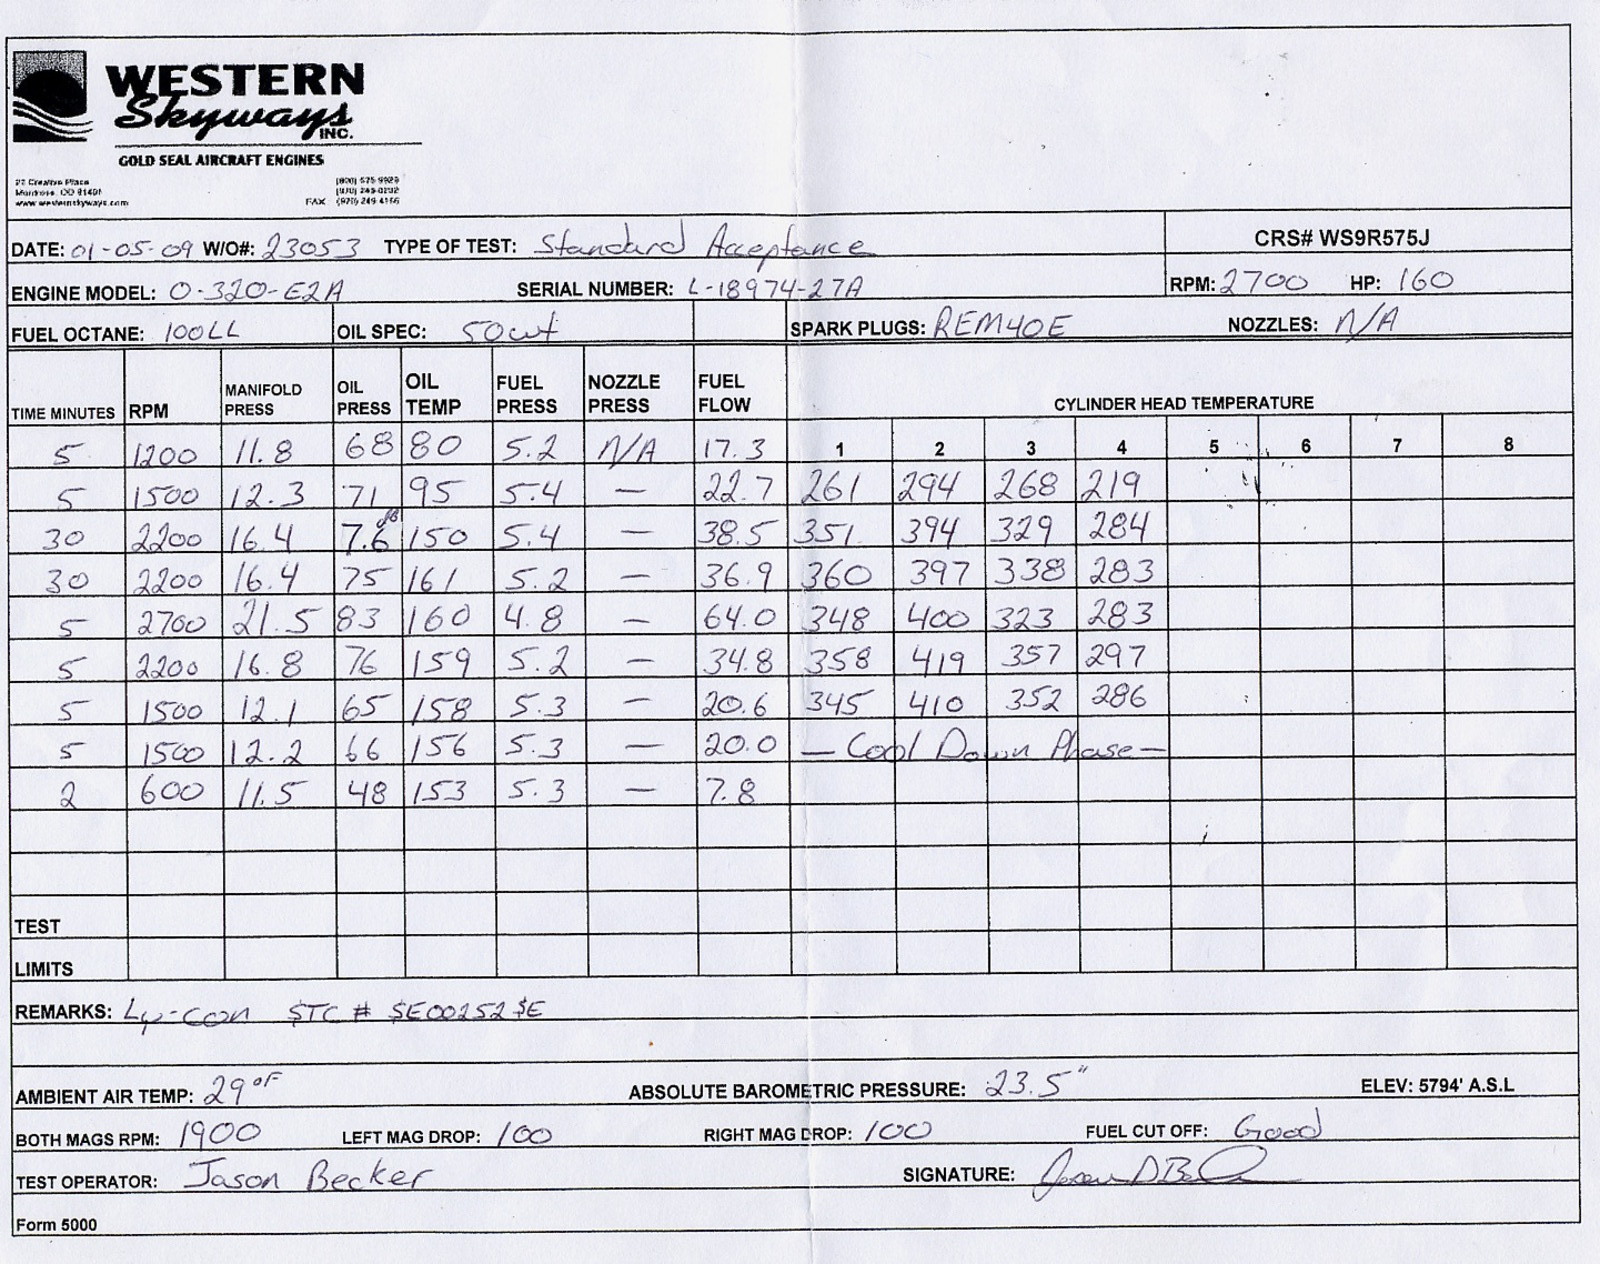 WESTERN
Skyways
INC.
GOLD SEAL AIRCRAFT ENGINES
Creative Place
Montrose, CO 81401
www.westernskyways.com
(800) 575-9929
(970) 249-0232
FAX (970) 249-4166
DATE: 01-05-09 W/O#: 23053 TYPE OF TEST: Standard Acceptance
CRS# WS9R575J
ENGINE MODEL: O-320-E2A SERIAL NUMBER: L-18974-27A RPM: 2700 HP: 160
FUEL OCTANE: 100LL OIL SPEC: 50wt SPARK PLUGS: REM40E NOZZLES: N/A
TIME MINUTES RPM MANIFOLD PRESS OIL PRESS OIL TEMP FUEL PRESS NOZZLE PRESS FUEL FLOW CYLINDER HEAD TEMPERATURE
1 2 3 4 5 6 7 8
5 1200 11.8 68 80 5.2 N/A 17.3
5 1500 12.3 71 95 5.4 — 22.7 261 294 268 219
30 2200 16.4 7.6 150 5.4 — 38.5 351 394 329 284
30 2200 16.4 75 161 5.2 — 36.9 360 397 338 283
5 2700 21.5 83 160 4.8 — 64.0 348 400 323 283
5 2200 16.8 76 159 5.2 — 34.8 358 419 357 297
5 1500 12.1 65 158 5.3 — 20.6 345 410 352 286
5 1500 12.2 66 156 5.3 — 20.0 — Cool Down Phase —
2 600 11.5 48 153 5.3 — 7.8
TEST
LIMITS
REMARKS: Ly-con STC # SE00252SE
AMBIENT AIR TEMP: 29°F ABSOLUTE BAROMETRIC PRESSURE: 23.5" ELEV: 5794' A.S.L
BOTH MAGS RPM: 1900 LEFT MAG DROP: 100 RIGHT MAG DROP: 100 FUEL CUT OFF: Good
TEST OPERATOR: Jason Becker SIGNATURE:
Form 5000